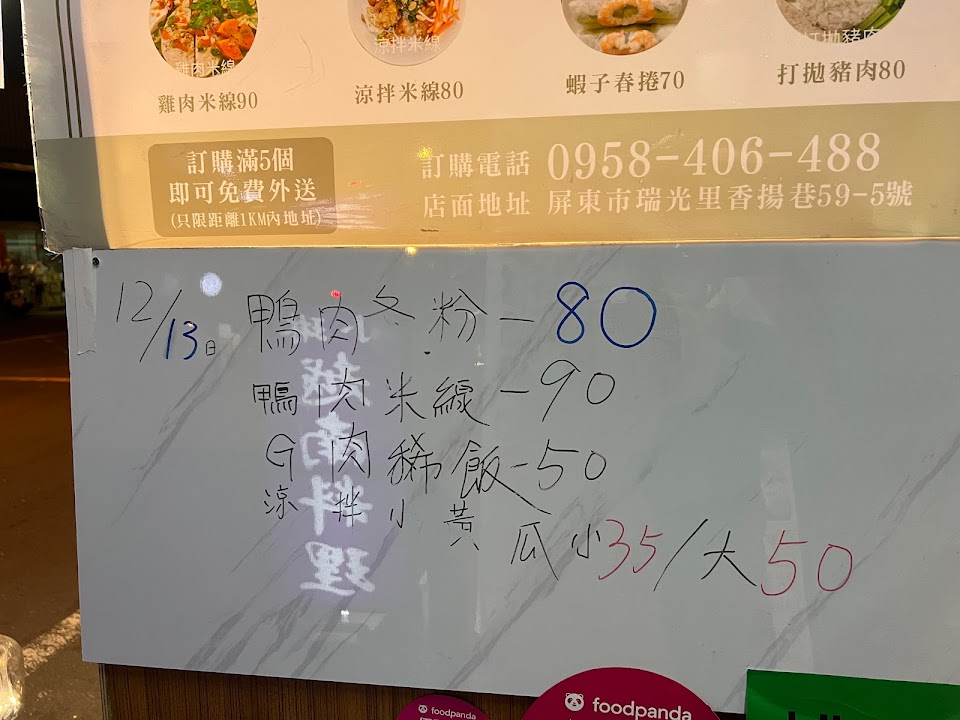 雞肉米線
涼拌米線
打拋豬肉
雞肉米線90
涼拌米線80
蝦子春捲70
打拋豬肉80
訂購滿5個
即可免費外送
(只限距離1KM內地址)
訂購電話 0958-406-488
店面地址 屏東市瑞光里香揚巷59-5號
12/13日 鴨肉冬粉-80
鴨肉米線-90
G肉稀飯-50
涼拌小黃瓜小35/大50
越南料理
foodpanda
foodpanda